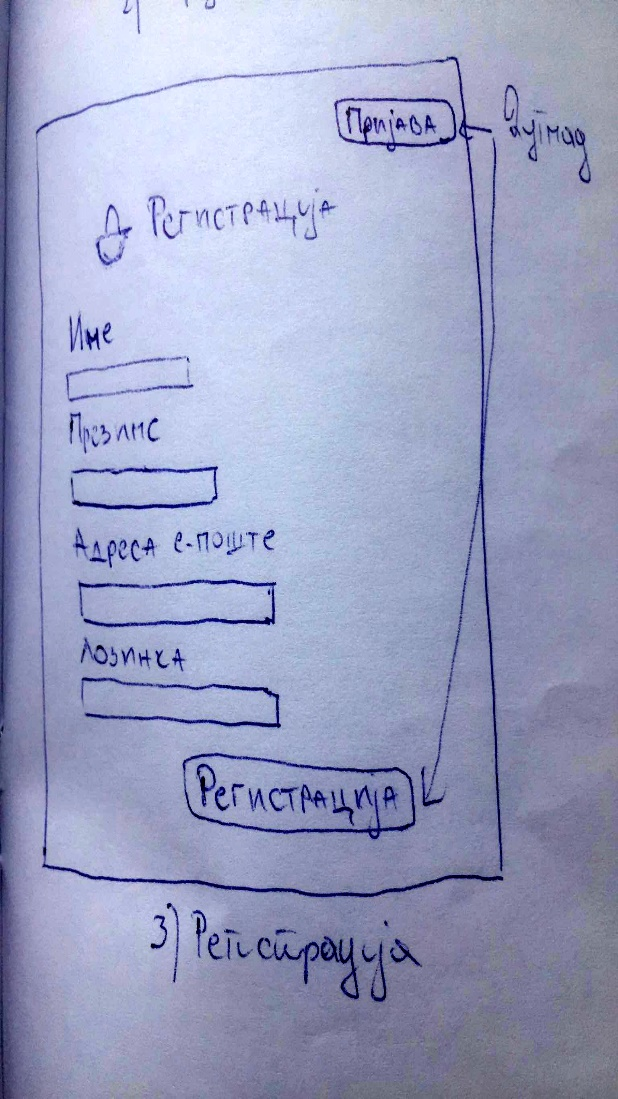 Пријава
Дугмад
Регистрација
Име
Презиме
Адреса е-поште
Лозинка
Регистрација
3) Регистрација